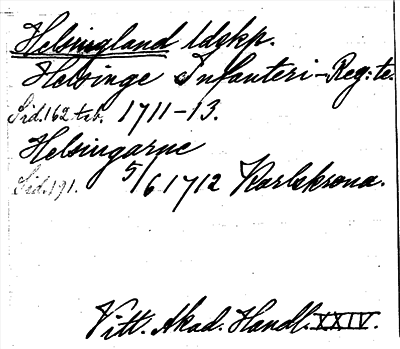 Helsingland ldskp.
Helsinge Infanteri-Reg:te.
Sid. 162 tab. 1711-13.
Helsingarne
Sid. 191. 5/6 1712 Karlskrona.
Vitt. Akad. Handl. XXIV.